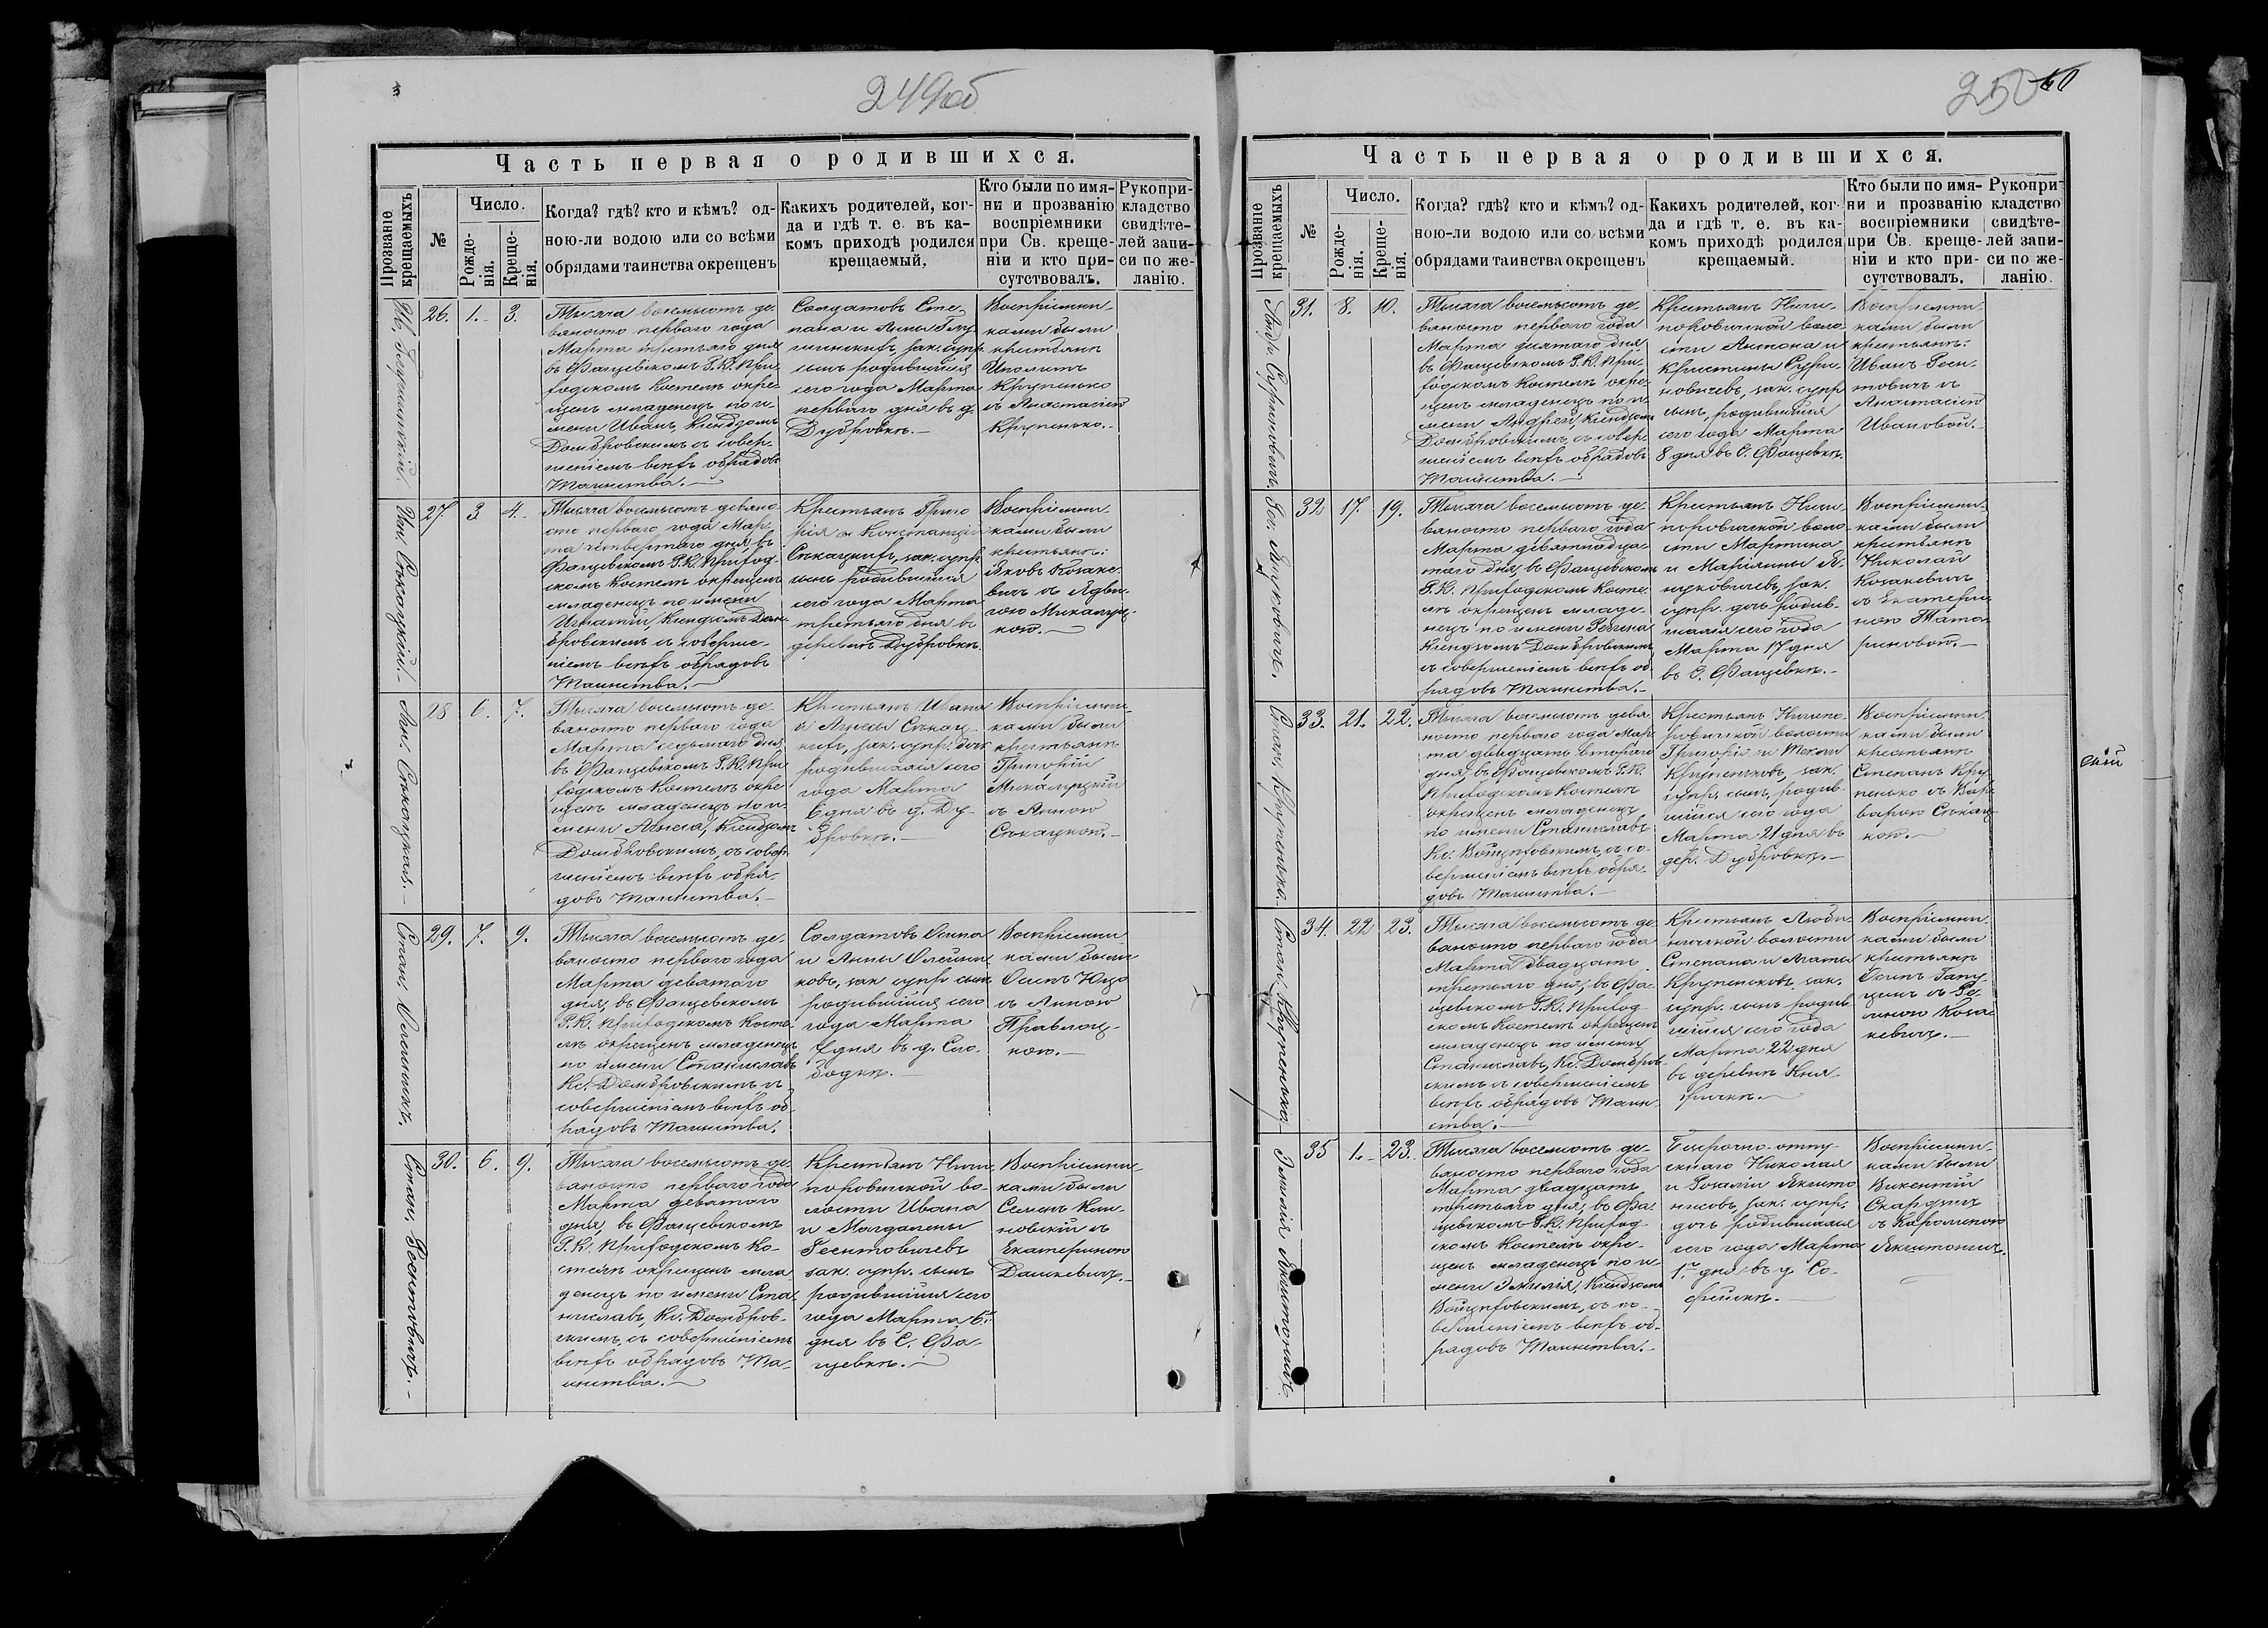 249об
Часть первая о родившихся.
Прозваніе крещаемыхъ
№
Число.
Рожде-
нія.
Креще-
нія.
Когда? гдѣ? кто и кѣмъ? од-
ною-ли водою или со всѣми
обрядами таинства окрещенъ
Какихъ родителей, ког-
да и гдѣ т. е. въ ка-
комъ приходѣ родился
крещаемый.
Кто были по имя-
ни и прозванію
воспріемники
при Св. креще-
ніи и кто при-
сутствовалъ.
Рукопри-
кладство
свидѣте-
лей запи-
си по же-
ланію.
26. 1. 3.
Тысяча восемьсотъ де-
вяносто перваго года
Марта третьяго дня
въ Фащевскомъ Р. К. При-
ходскомъ Костелѣ окре-
щенъ младенецъ по и-
мени Иванъ, Ксендзомъ
Домбровскимъ съ совер-
шеніемъ всѣхъ обрядовъ
Таинства.
Солдатовъ Сте-
пана и Анны
зак. супр.
сынъ родившійся
сего года Марта
перваго дня въ д.
Дубровкѣ.
Воспріемни-
ками были
крестьяне
Иполитъ
Крупенько
съ Анастасіею
Крупенько.
Игн. Сѣкацкій.
27. 3. 4.
Тысяча восемьсотъ девяно-
сто перваго года Мар-
та четвертаго дня, въ
Фащевскомъ Р. К. Приход-
скомъ Костелѣ окрещенъ
младенецъ по имени
Игнатій, Ксендзомъ Дом-
бровскимъ съ соверше-
ніемъ всѣхъ обрядовъ
Таинства.
Крестьянъ Григо-
рія и Констанціи
Сѣкацкихъ, зак. супр.
сынъ родившійся
сего года Марта
третьяго дня въ
деревнѣ Дубровкѣ.
Воспріемни-
ками были
крестьяне:
Яковъ Козаке-
вичъ съ Ядви-
гою Микалуц-
кою.
28 6. 7.
Тысяча восемьсотъ де-
вяносто перваго года
Марта седьмаго дня,
въ Фащевскомъ Р. К. При-
ходскомъ Костелѣ окре-
щенъ младенецъ по и-
мени Агнеса, Ксендзомъ
Домбровскимъ, съ совер-
шеніемъ всѣхъ обря-
довъ Таинства.
Крестьянъ Ивана
и Агнесы Сѣкац-
кихъ, зак. супр. дочь
родившаяся сего
года Марта
6 дня въ д. Ду-
бровкѣ.
Воспріемни-
ками были
крестьяне
Григорій
Микалуцкій
съ Анною
Сѣкацкою.
29. 7. 9.
Тысяча восемьсотъ де-
вяносто перваго года
Марта девятаго
дня, въ Фащевскомъ
Р. К. Приходскомъ Косте-
лѣ окрещенъ младенецъ
по имени Станиславъ
Кс. Домбровскимъ съ
совершеніемъ всѣхъ об-
рядовъ Таинства.
Солдатовъ Осипа
и Анны Олейни-
ковъ, зак. супр. сынъ
родившійся сего
года Марта
7 дня въ д. Сло-
бодкѣ.
Воспріемни-
ками были
Осипъ
съ Анною
Правлоц-
кою.
Стан. Гесентовичъ.
30. 6. 9.
Тысяча восемьсотъ де-
вяносто перваго года
Марта девятаго
дня, въ Фащевскомъ
Р. К. Приходскомъ Ко-
стелѣ окрещенъ мла-
денецъ по имени Ста-
ниславъ, Кс. Домбров-
скимъ, съ совершеніемъ
всѣхъ обрядовъ Та-
инства.
Крестьянъ Ничи-
поровичской во-
лости Ивана
и Магдалены
Гесентовичевъ
зак. супр. сынъ
родившійся сего
года Марта 6.
дня въ С. Фа-
щевкѣ.
Воспріемни-
ками были
Семенъ
съ
Екатериною
Дашкевичъ.
250
Часть первая о родившихся.
Прозваніе крещаемыхъ
№
Число.
Рожде-
нія.
Креще-
нія.
Когда? гдѣ? кто и кѣмъ? од-
ною-ли водою или со всѣми
обрядами таинства окрещенъ
Какихъ родителей, ког-
да и гдѣ т. е. въ ка-
комъ приходѣ родился
крещаемый.
Кто были по имя-
ни и прозванію
воспріемники
при Св. креще-
ніи и кто при-
сутствовалъ.
Рукопри-
кладство
свидѣте-
лей запи-
си по же-
ланію.
31. 8. 10.
Тысяча восемьсотъ де-
вяносто перваго года
Марта десятаго дня
въ Фащевскомъ Р. К. При-
ходскомъ Костелѣ окре-
щенъ младенецъ по и-
мени Андрей, Ксендзомъ
Домбровскимъ, съ совер-
шеніемъ всѣхъ обрядовъ
Таинства.
Крестьянъ Ничи-
поровичской воло-
сти Антона и
Кристины Сури-
новичевъ, зак. супр.
сынъ, родившійся
сего года Марта
8 дня въ С. Фащевкѣ.
Воспріемни-
ками были
крестьяне:
Иванъ Гесен-
товичъ съ
Анастасіею
Ивановой.
32 17. 19.
Тысяча восемьсотъ де-
вяносто перваго года
Марта девятнадца-
таго дня, въ Фащевскомъ
Р. К. Приходскомъ Косте-
лѣ окрещенъ младе-
нецъ по имени
Ксендзомъ Домбровскимъ
съ совершеніемъ всѣхъ об-
рядовъ Таинства.
Крестьянъ Ничи-
поровичской воло-
сти Мартина
и Маріанны Я-
цковичевъ, зак.
супр. дочь родив-
шаяся сего года
Марта 17 дня
въ С. Фащевкѣ.
Воспріемни-
ками были
крестьяне
Николай
Козакевичъ
съ Екатери-
ною Тата-
риновою.
Стан. Крупенько.
33. 21. 22.
Тысяча восемьсотъ девя-
носто перваго года Мар-
та двадцать втораго
дня, въ Фащевскомъ Р. К.
Приходскомъ Костелѣ
окрещенъ младенецъ
по имени Станиславъ
Кс. Войцеховскимъ, съ со-
вершеніемъ всѣхъ обря-
довъ Таинства.
Крестьянъ Ничипо-
ровичской волости
Григорія и Теклы
Крупеньковъ, зак.
супр. сынъ, родив-
шійся сего года
Марта 21 дня въ
дер. Дубровкѣ.
Воспріемни-
ками были
крестьяне
Степанъ Кру-
пенько съ Вар-
варою Сѣкац-
кою.
Стан. Крупенько
34. 22 23.
Тысяча восемьсотъ де-
вяносто перваго года
Марта двадцать
третьяго дня, въ Фа-
щевскомъ Р. К. Приход-
скомъ Костелѣ окрещенъ
младенецъ по имени
Станиславъ, Кс. Домбров-
скимъ съ совершеніемъ
всѣхъ обрядовъ Таин-
ства.
Крестьянъ Люби-
ничской волости
Степана и Агаты
Крупеньковъ, зак.
супр. сынъ родив-
шійся сего года
Марта 22 дня
въ деревнѣ
Воспріемни-
ками были
крестьяне
Осипъ
съ
Коза-
кевичъ.
35 1. 23.
Тысяча восемьсотъ де-
вяносто перваго года
Марта двадцать
третьяго дня, въ Фа-
щевскомъ Р. К. Приход-
скомъ Костелѣ окре-
щенъ младенецъ по и-
мени Эмилія, Ксендзомъ
Войцеховскимъ, съ со-
вершеніемъ всѣхъ об-
рядовъ Таинства.
Безсрочно-отпу-
скнаго Николая
и Розаліи
зак. супр.
дочь родившаяся
сего года Марта
1 дня въ д. Со-
фійскѣ.
Воспріемни-
ками были
Викентій
съ Каролиною